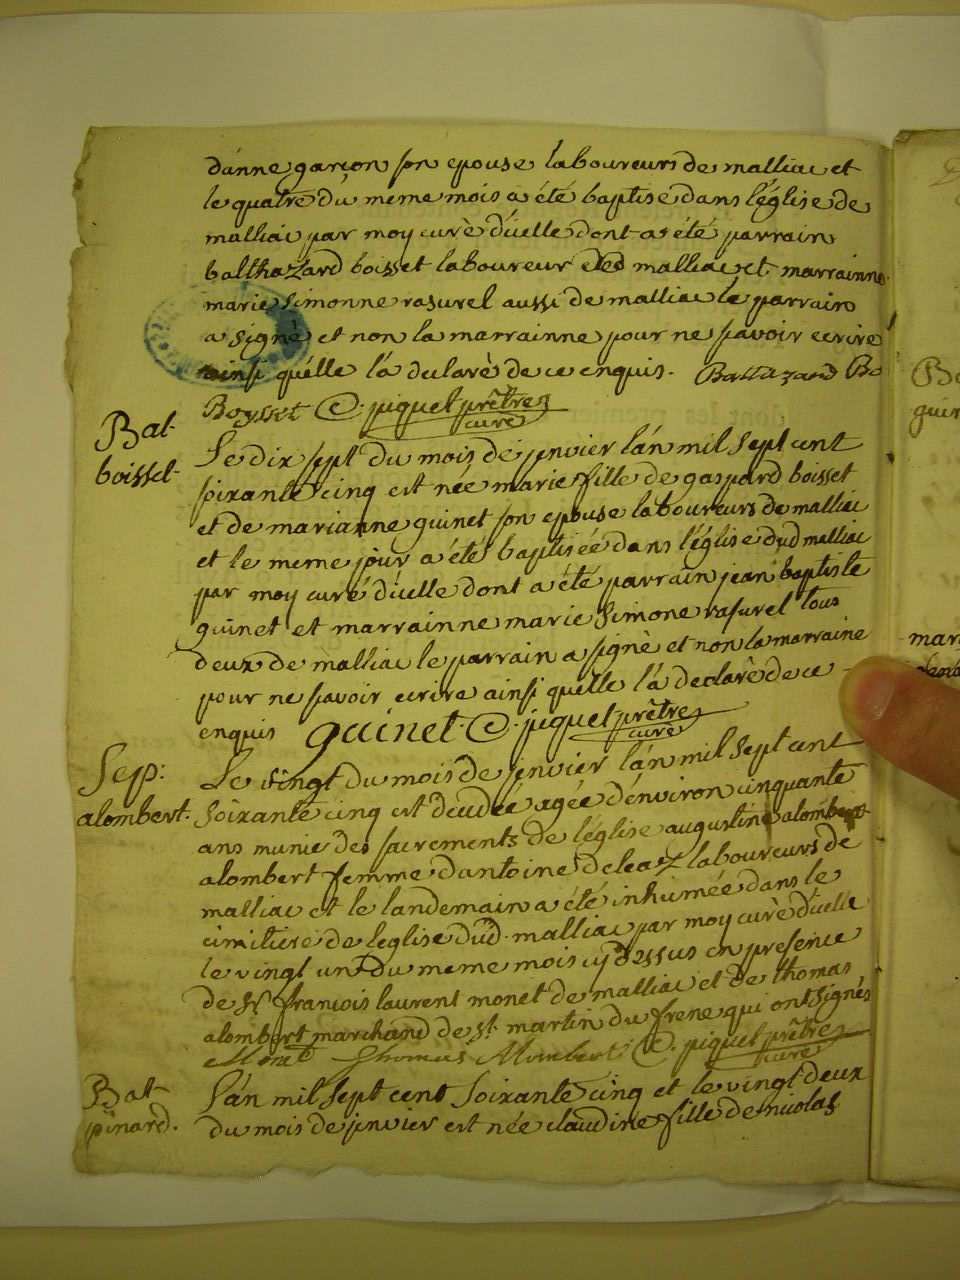 d'anne garçon son epouse laboureurs de malliac et
le quatre du meme mois a été baptisé dans l'église de
malliac par moy curè d'icelle dont a été parrain
balthazard boisset laboureur malliac et marrainne
marie simonne rasurel aussi de malliac le parrain
a signé et non la marrainne pour ne savoir ecrire
ainsi qu'elle l'a declarè de ce enquis. Baltazard Bo
Boysset C. piquet prêtre
curé
Bat.
boisset.
Le dix sept du mois de jenvier l'an mil sept cent
soixante cinq est née marie fille de gaspard boisset
et de marianne guinet son epouse laboureurs de malliac
et le meme jour a été baptisée dans l'église dud malliac
par moy curé d'icelle dont a été parrain jean baptiste
guinet et marrainne marie simone rasurel tous
deux de malliac le parrain a signè et non la marraine
pour ne savoir ecrire ainsi qu'elle l'a declarè de ce
enquis guinet. C. piquet prêtre
curé
Sep:
alombert.
Le vingt du mois de jenvier l'an mil sept cent
soixante cinq est decedée agée d'environ cinquante
ans munie des sacrements de l'église augustine alombert
alombert femme d'antoine deleaz laboureurs de
malliac et le landemain a été inhumée dans le
cimitiere de l'eglise dud. malliac par moy curè d'icelle
le vingt un du meme mois cy dessus en presence
de Sr. françois laurent monet de malliac et de thomas
alombert marchand de st. martin du frene qui ont signés
Monet Thomas Alombert C. piquet prêtre
curé
Bat
pinard.
L'an mil sept cent soixante cinq et le vingt deux
du mois de jenvier est née claudine fille de nicolas